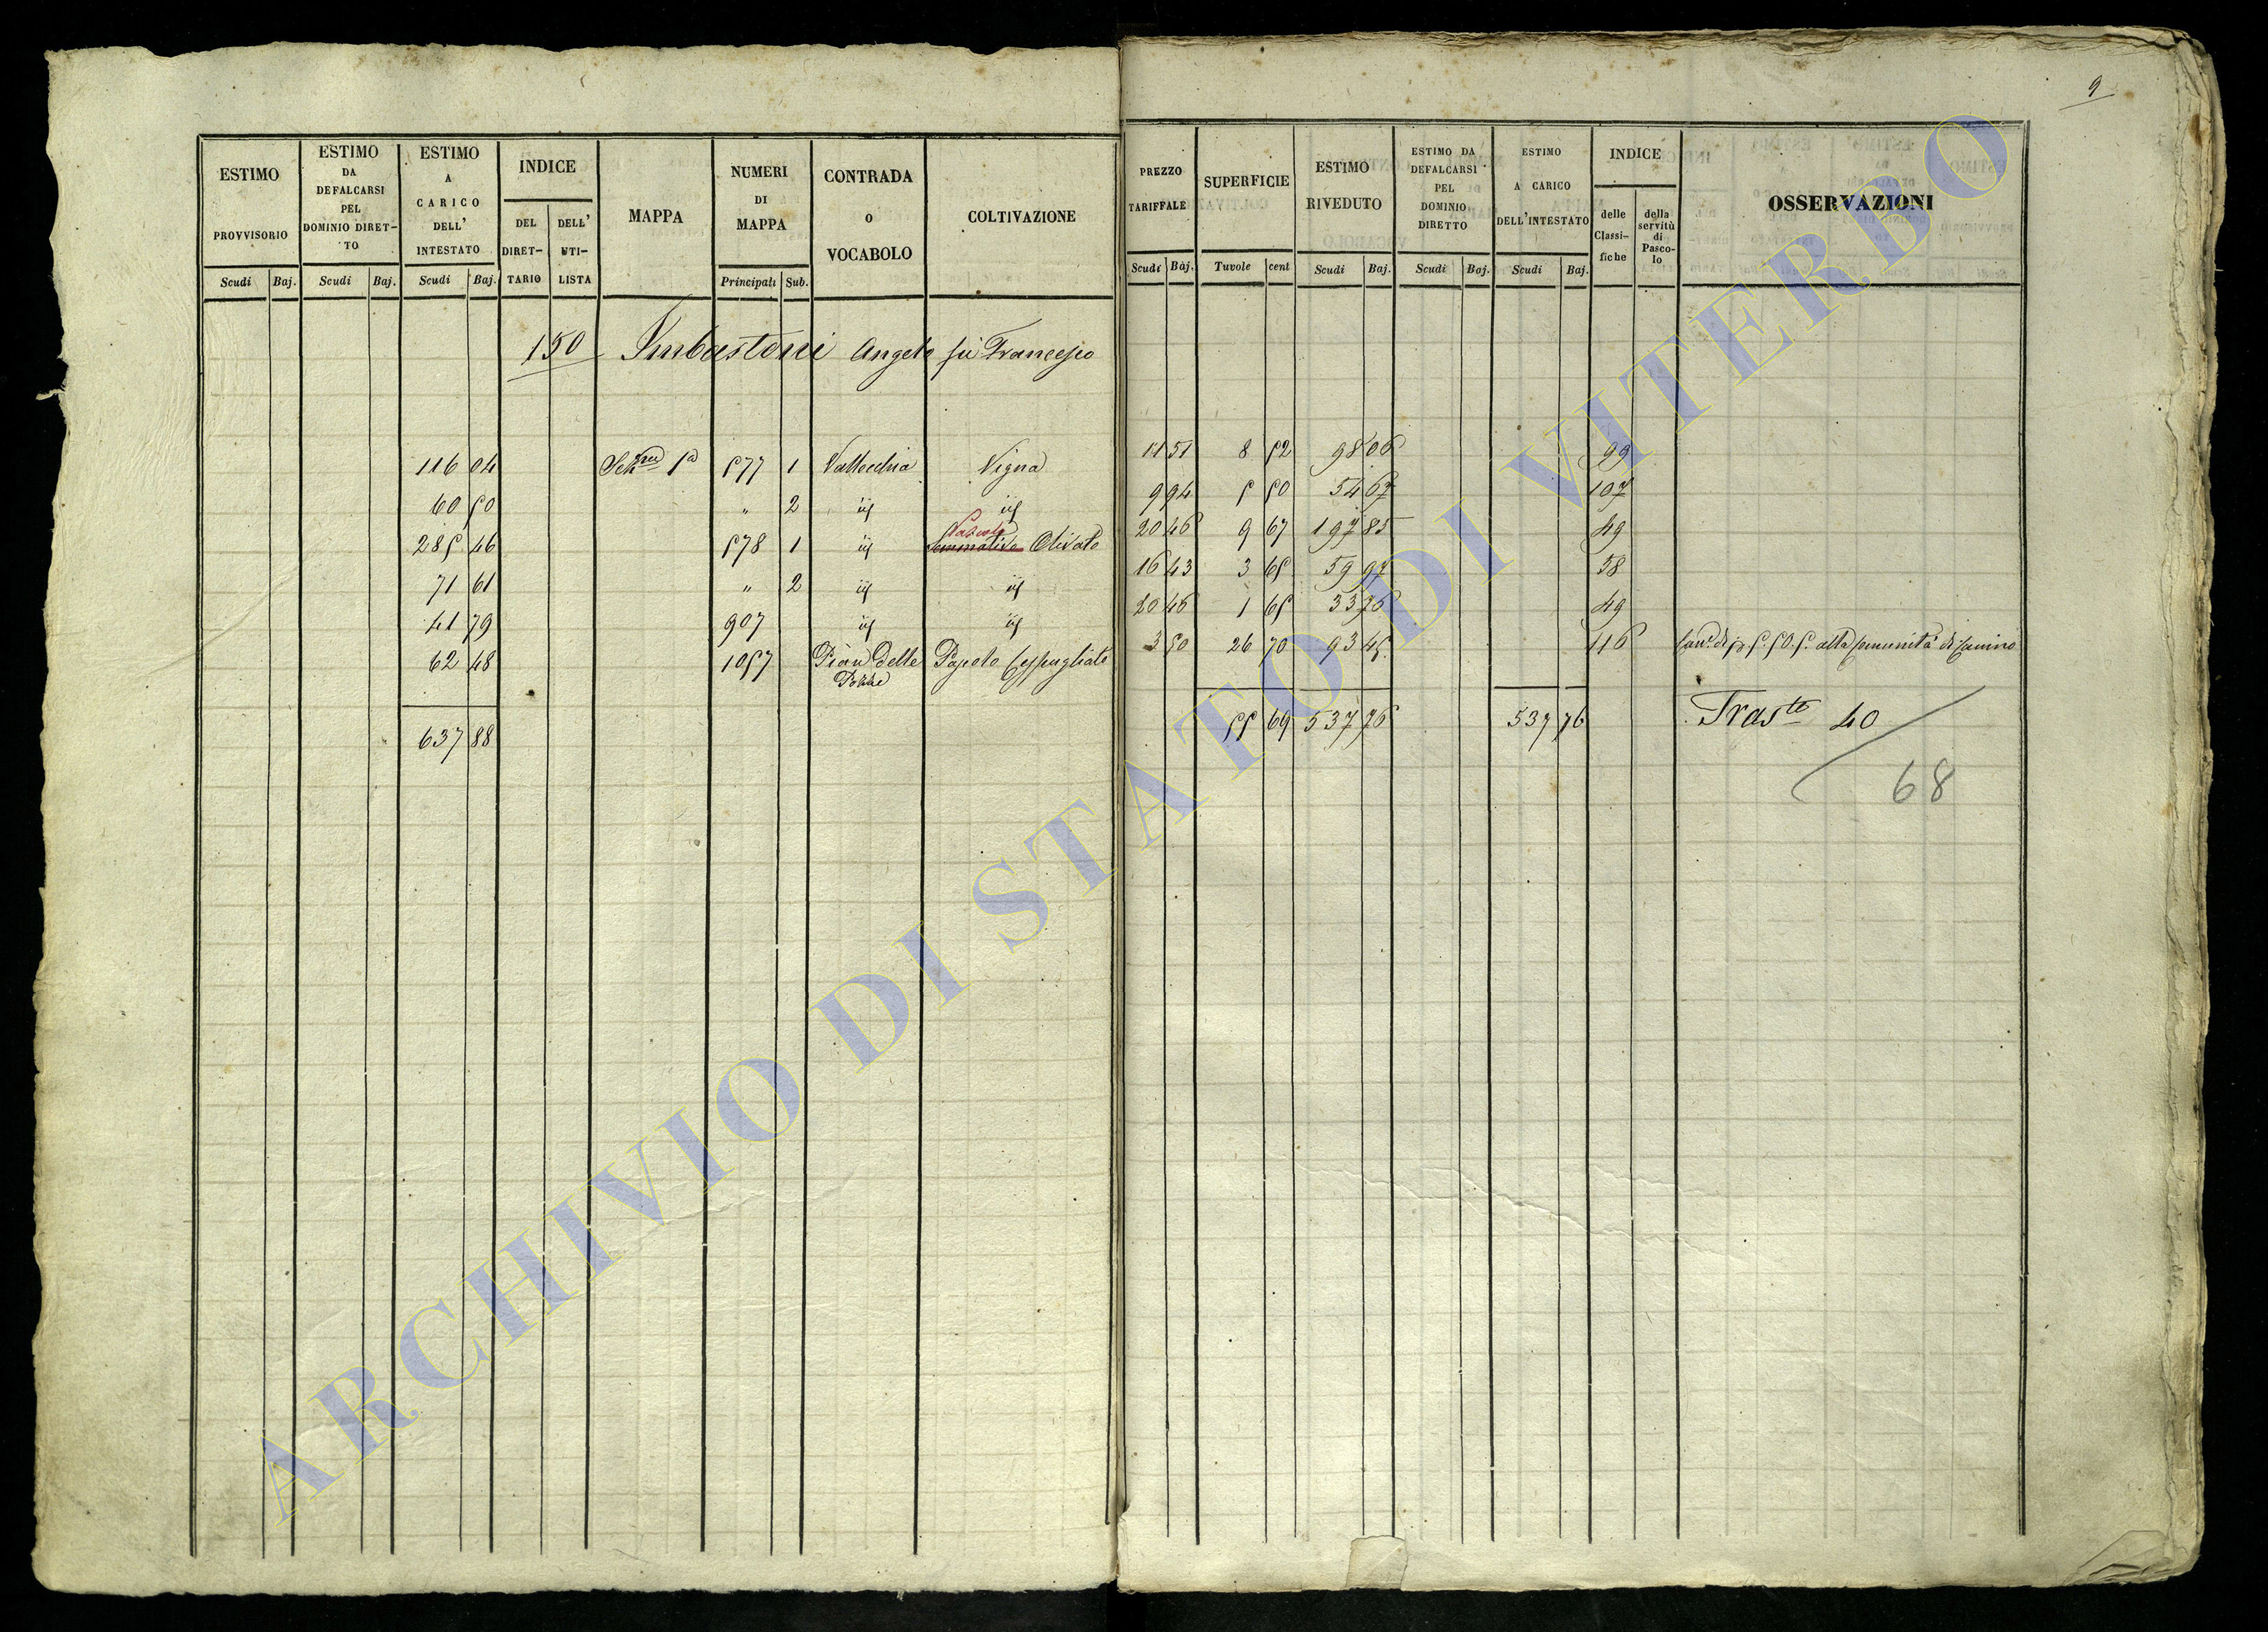 9
ESTIMO PROVVISORIO Scudi Baj.
ESTIMO DA DEFALCARSI PEL DOMINIO DIRET-TO Scudi Baj.
ESTIMO A CARICO DELL' INTESTATO Scudi Baj.
INDICE DEL DIRET-TARIO DELL' UTI-LISTA
MAPPA
NUMERI DI MAPPA Principali Sub.
CONTRADA O VOCABOLO
COLTIVAZIONE
PREZZO TARIFFALE Scudi Baj.
SUPERFICIE Tavole cent
ESTIMO RIVEDUTO Scudi Baj.
ESTIMO DA DEFALCARSI PEL DOMINIO DIRETTO Scudi Baj.
ESTIMO A CARICO DELL'INTESTATO Scudi Baj.
INDICE delle Classi-fiche della servitù di Pasco-lo
OSSERVAZIONI
150 Imbastoni Angelo fu Francesco
116 04 Sez.ne 1a 577 1 Vallecchia Vigna 11 51 8 52 98 06 99
60 50 " 2 id id 9 94 5 50 54 67 107
285 46 578 1 id Seminativo Pascolo Olivato 20 46 9 67 197 85 49
71 61 " 2 id id 16 43 3 65 59 97 38
41 79 907 id id 20 46 1 65 33 76 49
62 48 1057 Pian delle Pozze Pascolo Cespugliato 3 50 26 70 93 45 116 di alla Comunità di Canino
637 88 55 69 537 76 537 76 Trasto 40
68
ARCHIVIO DI STATO DI VITERBO